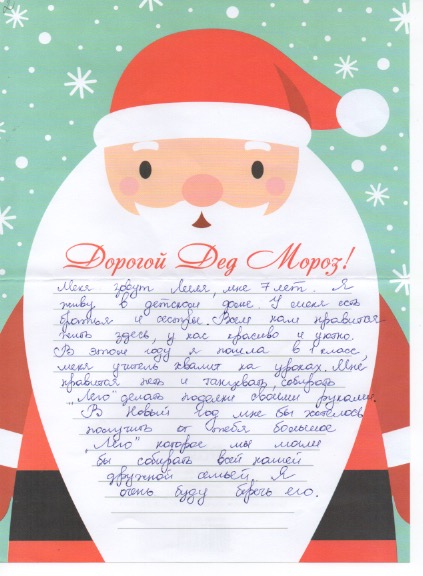 Дорогой Дед Мороз!
Меня зовут Лиля, мне 7 лет. Я
живу в детском доме. У меня есть
братья и сестры. Всем нам нравится
жить здесь, у нас красиво и уютно.
В этом году я пошла в 1 класс,
меня учитель хвалит на уроках. Мне
нравится петь и танцевать, собирать
Лего делать поделки своими руками.
В Новый Год мне бы хотелось
получить от тебя большое
„Лего" которое мы могли
бы собирать всей нашей
дружной семьей. Я
очень буду беречь его.